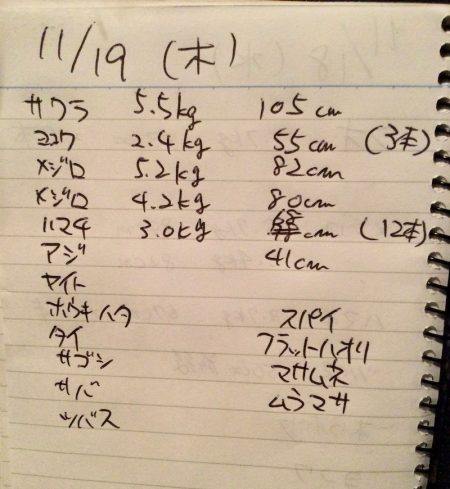 11/19 (木)
サワラ 5.5kg 105cm
ヨコワ 2.4kg 55cm (3本)
メジロ 5.2kg 82cm
メジロ 4.2kg 80cm
ハマチ 3.0kg cm (12本)
アジ 41cm
ヤイト
ホウキハタ
タイ スパイ
サゴシ フラットハオリ
サバ マサムネ
ツバス ムラマサ